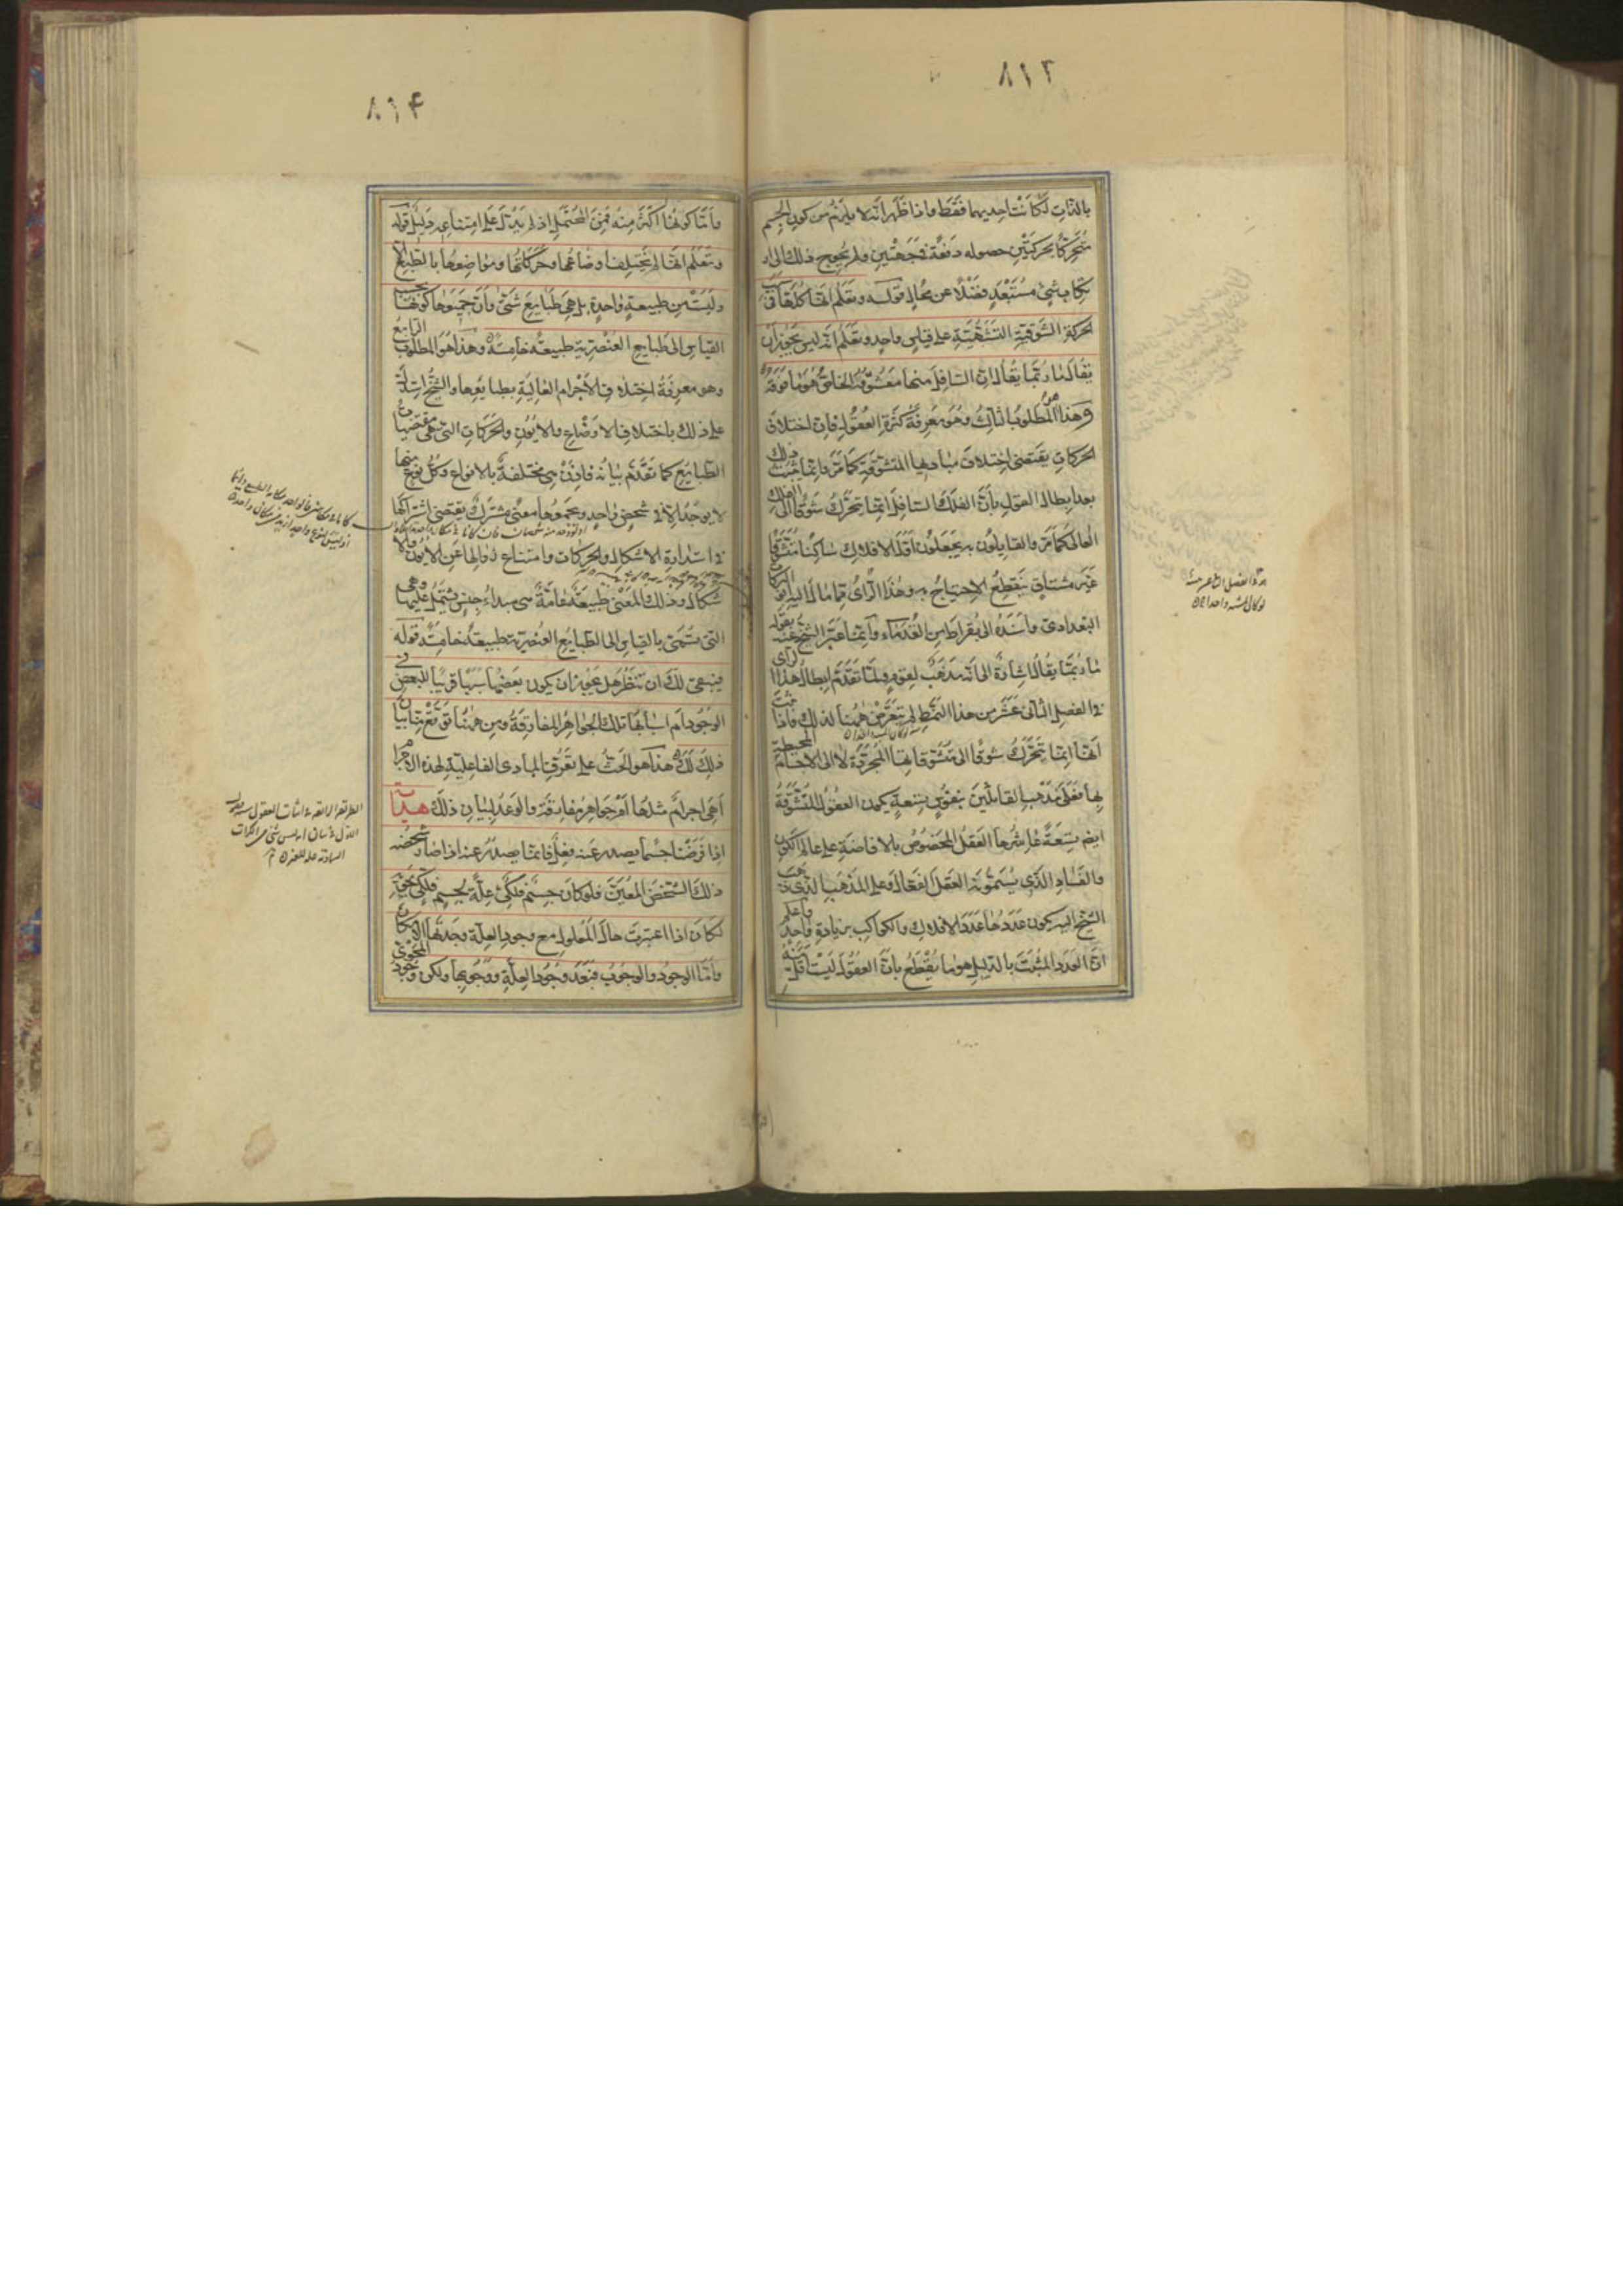 ٨١٣
بالذات لكانت احديهما فقط واذا ظهر انه لا يلزم من كون الجسم
متحركا بحركتين حصوله دفعة في جهتين ولم يحوج ذلك الى ار
تكاب شئ مستبعد فضلا عن محال قوله وتعلم انها كلها في
الحركة الشوقية التشبهية على قياس واحد وتعلم انه ليس يجوز ان
يقال ما ربما يقال ان السافل منها معشوقه الخاص هو ما فوقه
وهذا هو المطلوب الثالث وهو معرفة كثرة العقول فان اختلاف
الحركات يقتضى اختلاف مباديها المتشوقة كما مر وانما يثبت ذلك
بعد ابطال القول بان الفلك السافل انما يتحرك شوقا الى الفلك
العالى كما مر والقايلون به يجعلون اول الافلاك ساكنا متشوقا
غير مشتاق ينقطع الاحتياج به وهذا الرأى مما مال اليه ابو البركات
البغدادى واسنده الى بقراط من القدماء وانما عبر الشيخ عنه بقوله
ما ربما يقال اشارة الى انه مذهب لقوم ولما تقدم ابطال هذا الرأى
في الفصل الثانى عشر من هذا النمط لم يتعرض ههنا لذلك فاذا ثبت
انها انما يتحرك شوقا الى متشوقاتها المجردة لا الى الاجسام المحيطة
بها فعلى مذهب القائلين بنفوس تسعة يكون العقول المتشوقة
ايضا تسعة عاشرها العقل المخصوص بالافاضة على عالم الكون
والفساد الذى يسمونه العقل الفعال وعلى المذهب الذى ذهب
الشيخ اليه يكون عددها عدد الافلاك والكواكب بزيادة واحد واعلم
ان العدد المثبت بالدليل هو ما يقطع بان العقول ليست اقل منه
لو كان المشبه به واحدا
٨١٤
واما كونها اكثر منه فمن المحتمل اذ لم يدل على امتناعه دليل قوله
وتعلم انها لم يختلف اوضاعها وحركاتها ومواضعها بالطبع الا
وليست من طبيعة واحدة بل هى طبايع شتى وان جمعها كونها بحسب
القياس الى طبايع العنصرية طبيعة خامسة وهذا هو المطلوب الرابع
وهو معرفة اختلاف الاجرام العالية بطبايعها والشيخ استدل
على ذلك باختلاف الاوضاع والايون والحركات التى هى مقتضيات
الطبايع كما تقدم بيانه فاذن هى مختلفة بالانواع وكل نوع منها
لا يوجد الا في شخص واحد ويجمعها معنى مشترك يقتضى اشتراكها
في استدارة الاشكال والحركات وامتناع زوالها عن الايون والا
شكال وذلك المعنى طبيعة عامة هى مبداء جنس يشتمل عليها وهى
التى تسمى بالقياس الى الطبايع العنصرية طبيعة خامسة قوله
فينبغى لك ان تنظر هل يجوز ان يكون بعضها سببا قريبا للبعض في
الوجود ام اسبابها تلك الجواهر المفارقة ومن ههنا توقع منا بيان
ذلك لك هذا هو الحث على تعرف المبادى الفاعلية لهذه الاجرام
اهى اجرام مثلها ام جواهر مفارقة والوعد لبيان ذلك هداية
اذا فرضنا جسما يصدر عنه فعل فانما يصدر عنه اذا صار شخصه
ذلك الشخص المعين فلو كان جسم فلكى علة لجسم فلكى يحويه
لكان اذا اعتبرت حال المعلول مع وجود العلة وجدتها الامكان
واما الوجود والوجوب فبعد وجود العلة ووجوبها ولكن وجود المحوى